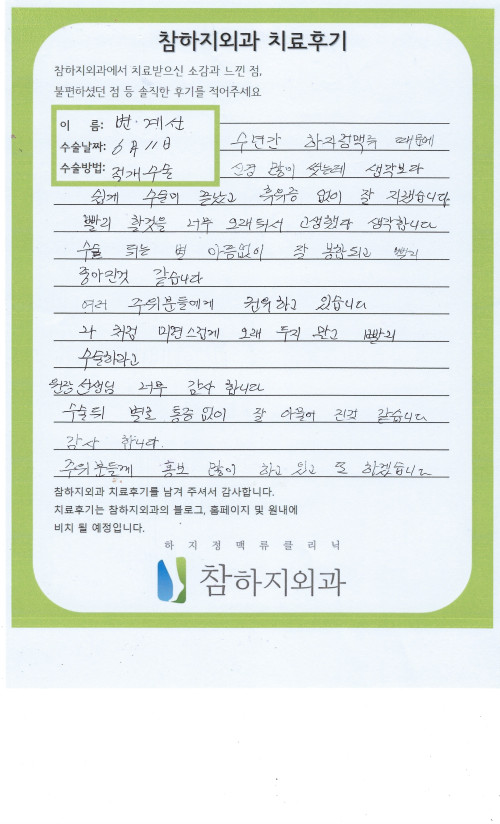 참하지외과 치료후기
참하지외과에서 치료받으신 소감과 느낀 점,
불편하셨던 점 등 솔직한 후기를 적어주세요
이 름: 변·계산
수술날짜: 6月 11日
수술방법: 적개수술
수년간 하지정맥류 때문에
신경 많이 썼는데 생각보다
쉽게 수술이 끝났고 후유증 없이 잘 지냈습니다
빨리 할것을 너무 오래되서 고생했다 생각합니다
수술 되는 별 아픔없이 잘 봉합되고 빨리
좋아진것 같습니다
여러 주위분들에게 권유하고 있습니다
나 처럼 미련스럽게 오래 두지 말고 빨리
수술하라고
원장선생님 너무 감사 합니다
수술뒤 별로 통증없이 잘 아물어 진것 같습니다
감사 합니다.
주위분들께 홍보 많이 하고 있고 또 하겠습니다
참하지외과 치료후기를 남겨 주셔서 감사합니다.
치료후기는 참하지외과의 블로그, 홈페이지 및 원내에
비치 될 예정입니다.
하지정맥류클리닉
참하지외과